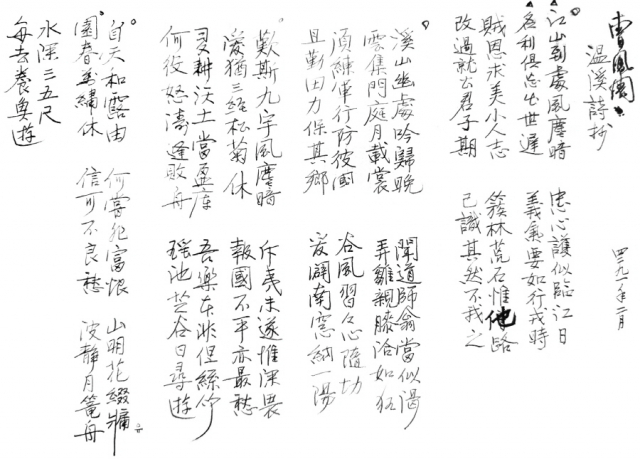 曺風閣
温溪詩抄　年二月
江山到處風塵暗　忠心護似臨江日
名利俱忘出世遲　義氣要如行我時
賊恩求美小人志　簇林荒石惟他路
改過就正君子期　己識其然不我之
溪山幽處吟歸晩　聞道師翁當似渴
雲集門庭月載裳　弄雛親膝洽如狂
須練軍行防彼國　谷風習々心隨切
且勤田力保其鄉　爰闢南窓納一陽
歎斯九宇風塵暗　斥夷未遂惟深畏
愛猶三逕松菊休　報國不平亦最愁
夏耕沃土當盈庫　吾樂本非但絲竹
何役怒濤逢敗舟　瑤池芝谷日尋遊
自天和露由　何嘗　富恨　山明花綴牖
園春　繡休　信可不良愁　波靜月篭舟
水深三五尺
每去養魚遊